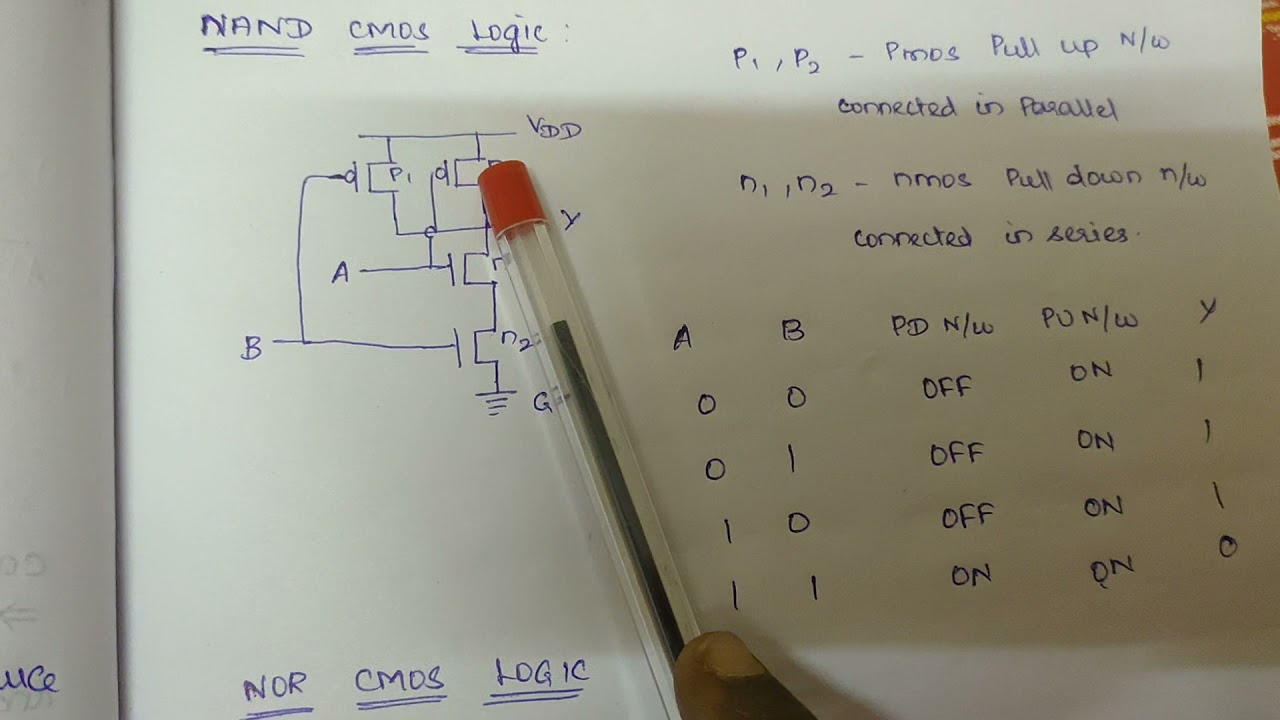 NAND CMOS Logic:
P1, P2 - Pmos Pull up N/w
connected in Parallel
n1, n2 - nmos Pull down n/w
connected in series.
VDD
P1
Y
A
B
n2
G
A B PD N/W PU N/W Y
0 0 OFF ON 1
0 1 OFF ON 1
1 0 OFF ON 1
1 1 ON ON 0
NOR CMOS LOGIC